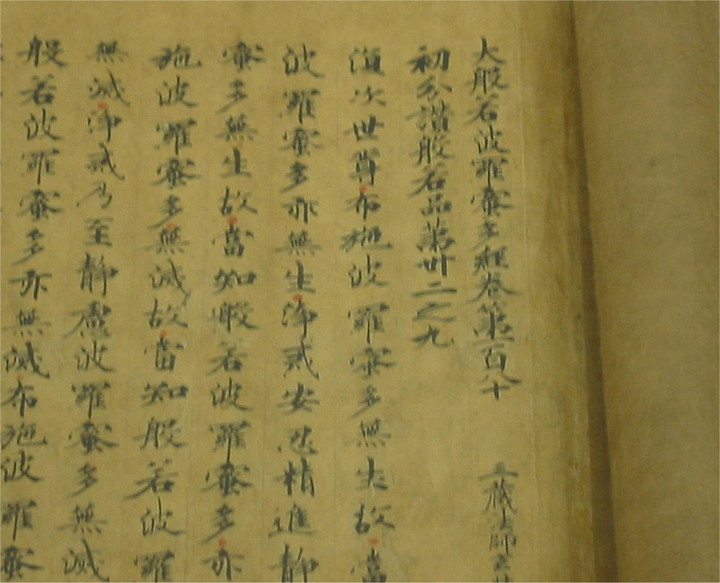 大般若波羅蜜多經卷第一百八十 三藏法師玄奘
初分讚般若品第卅二之九
復次世尊布施波羅蜜多無生故當
波羅蜜多亦無生淨戒安忍精進靜
蜜多無生故當知般若波羅蜜多亦
施波羅蜜多無滅故當知般若波羅
無滅淨戒乃至靜慮波羅蜜多無滅
般若波羅蜜多亦無滅布施波羅蜜